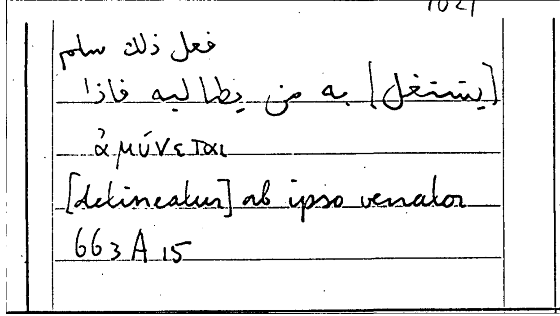 فعل ذلك سلم
[يشتغل] به من يطالبه فاذا
ἀμύνεται
[delineatur] ab ipso venator
663 A 15